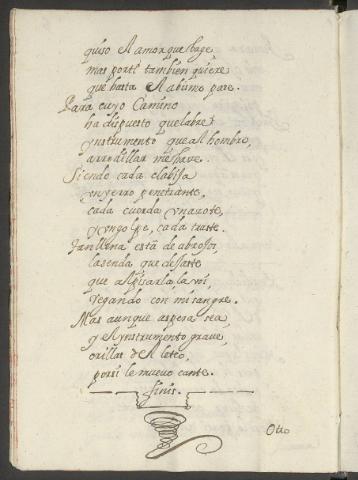 quiso el amor que baje
mas por ti tambien quiere
que hasta el abismo pase.
Para cuyo Camino
ha dispuesto que labre
ynstrumento que al hombre,
arrodillar me hace.
Siendo cada clabija
un yerro penetrante,
cada cuerda un azote,
y un golpe, cada traste.
Tan llena está de abrojos,
la senda que
que al pisarla, la voi,
regando con mi sangre.
Mas aunque aspera sea
y el ynstrumento grave,
orillas del leteo,
por si le muevo cante.
finis.
Otto